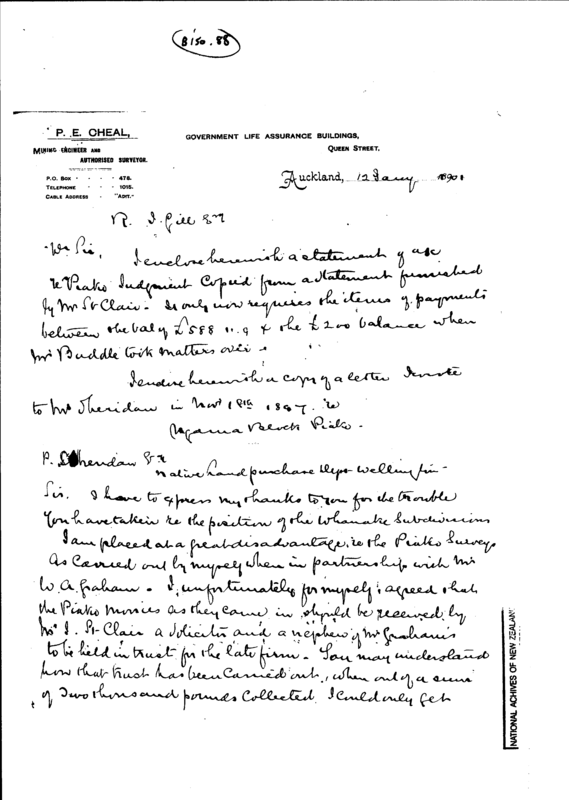 B150.88
P. E. CHEAL,
MINING ENGINEER AND
AUTHORISED SURVEYOR.
P.O. BOX - - - 476.
TELEPHONE - - - 1015.
CABLE ADDRESS - "ADIT."
GOVERNMENT LIFE ASSURANCE BUILDINGS,
QUEEN STREET.
Auckland, 12 Jany 1890
R. J. Gill Esq
Dr Sir,
I enclose herewith a statement of a/c
re Piako Judgment Copied from a statement furnished
by Mr St Clair - It only now requires the items of payments
between the bal of £588 11. 9 & the £200 balance when
Mr Buddle took matters over -
I enclose herewith a copy of a letter I wrote
to Mr Sheridan in Novr 18th 1897 re
Block Piako -
P. Sheridan Esqr
Native Land purchase Dept Wellington -
Sir, I have to express my thanks to you for the trouble
you have taken re the position of the Whanake Subdivisions
I am placed at a great disadvantage, re the Piako Surveys
as Carried out by myself when in partnership with Mr
W. A. Graham - I, unfortunately for myself, agreed that
the Piako monies as they came in should be received by
Mr J. St Clair a Solicitor and a nephew of Mr Graham's
to be held in trust for the late firm - You may understand
how that trust has been Carried out, when out of a sum
of Two thousand pounds Collected, I Could only get
NATIONAL ACHIVES OF NEW ZEALAND